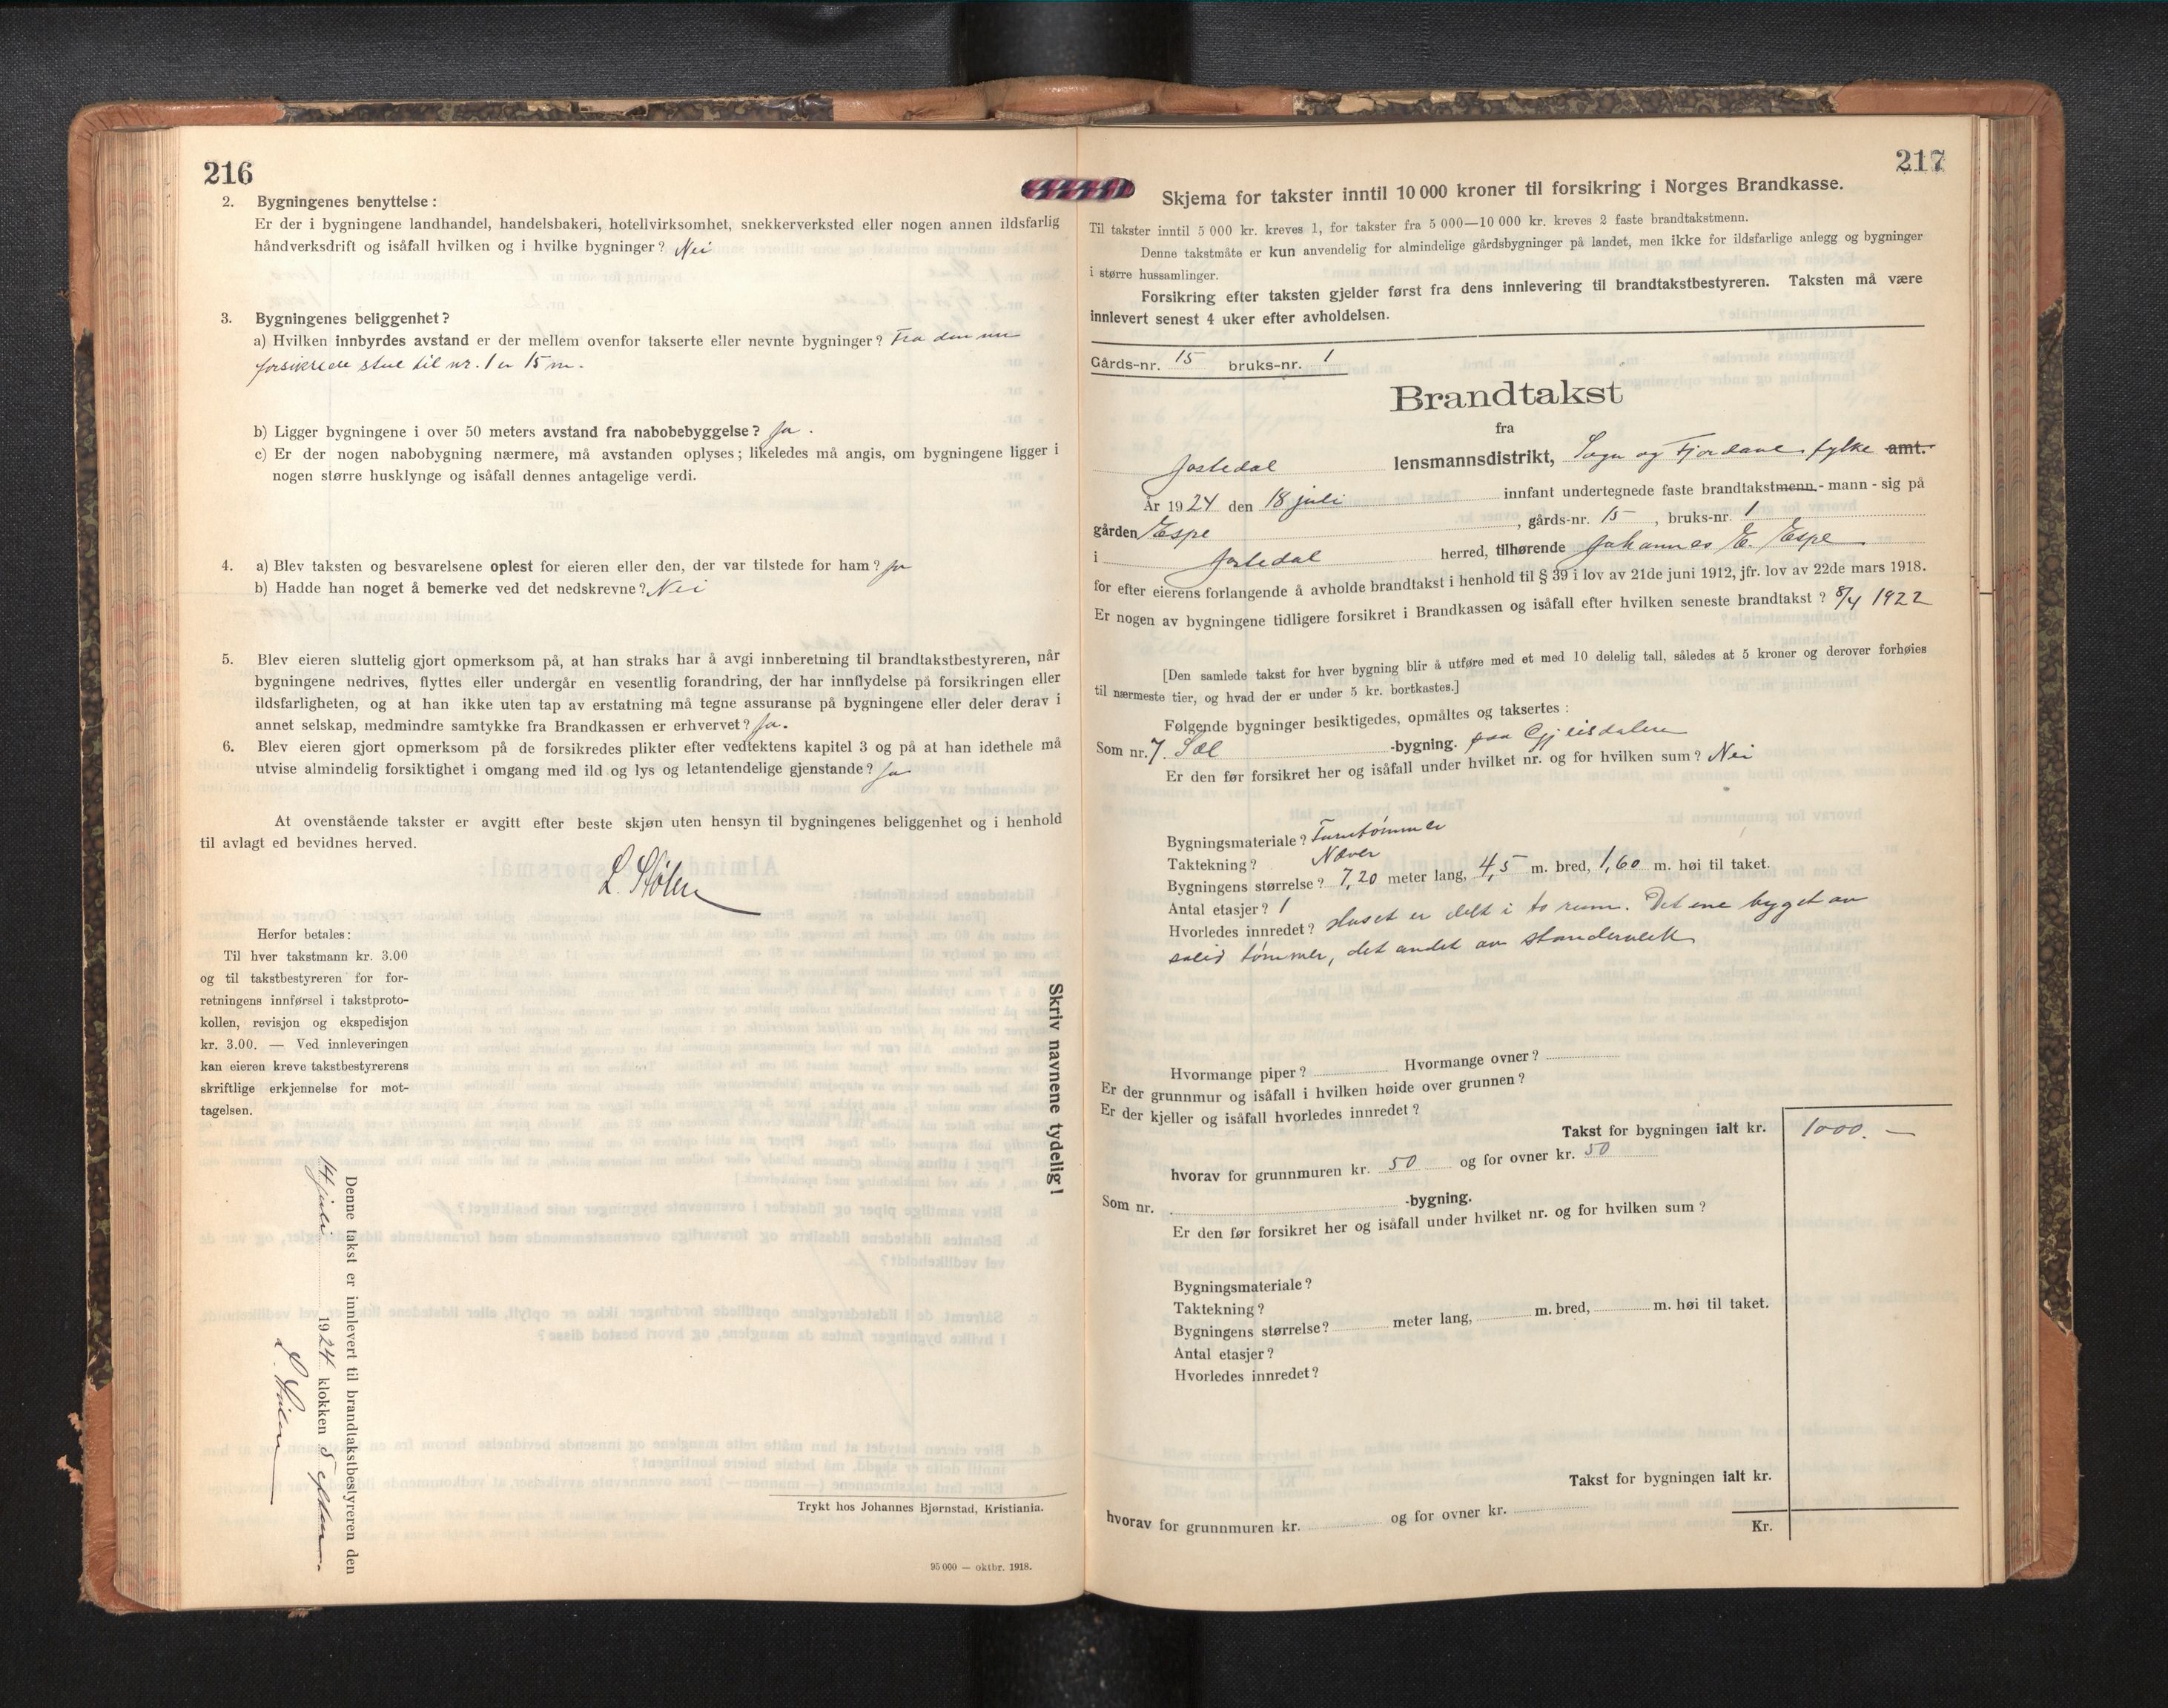 216
2. Bygningenes benyttelse :
Er der i bygningene landhandel, handelsbakeri, hotellvirksomhet, snekkerverksted eller nogen annen ildsfarlig
håndverksdrift og isåfall hvilken og i hvilke bygninger? Nei
3. Bygningenes beliggenhet?
a) Hvilken innbyrdes avstand er der mellem ovenfor takserte eller nevnte bygninger? Fra den nu
forsikrede stue til nr. 1 er 15 m.
b) Ligger bygningene i over 50 meters avstand fra nabobebyggelse? Ja.
c) Er der nogen nabobygning nærmere, må avstanden oplyses; likeledes må angis, om bygningene ligger i
nogen større husklynge og isåfall dennes antagelige verdi.
4. a) Blev taksten og besvarelsene oplest for eieren eller den, der var tilstede for ham? Ja
b) Hadde han noget å bemerke ved det nedskrevne? Nei
5. Blev eieren sluttelig gjort opmerksom på, at han straks har å avgi innberetning til brandtakstbestyreren, når
bygningene nedrives, flyttes eller undergår en vesentlig forandring, der har innflydelse på forsikringen eller
ildsfarligheten, og at han ikke uten tap av erstatning må tegne assuranse på bygningene eller deler derav i
annet selskap, medmindre samtykke fra Brandkassen er erhvervet? Ja.
6. Blev eieren gjort opmerksom på de forsikredes plikter efter vedtektens kapitel 3 og på at han idethele må
utvise almindelig forsiktighet i omgang med ild og lys og letantendelige gjenstande? Ja
At ovenstående takster er avgitt efter beste skjøn uten hensyn til bygningenes beliggenhet og i henhold
til avlagt ed bevidnes herved.
L. Stølen
Herfor betales:
Til hver takstmann kr. 3.00
og til takstbestyreren for for-
retningens innførsel i takstproto-
kollen, revisjon og ekspedisjon
kr. 3.00. — Ved innleveringen
kan eieren kreve takstbestyrerens
skriftlige erkjennelse for mot-
tagelsen.
Skriv navnene tydelig!
Denne takst er innlevert til brandtakstbestyreren den
14 juli 1924 klokken 5 efterm.
L. Stølen
Trykt hos Johannes Bjørnstad, Kristiania.
95 000 — oktbr. 1918.
217
Skjema for takster inntil 10 000 kroner til forsikring i Norges Brandkasse.
Til takster inntil 5 000 kr. kreves 1, for takster fra 5 000—10 000 kr. kreves 2 faste brandtakstmenn.
Denne takstmåte er kun anvendelig for almindelige gårdsbygninger på landet, men ikke for ildsfarlige anlegg og bygninger
i større hussamlinger.
Forsikring efter taksten gjelder først fra dens innlevering til brandtakstbestyreren. Taksten må være
innlevert senest 4 uker efter avholdelsen.
Gårds-nr. 15 bruks-nr. 1
Brandtakst
fra
Jostedal lensmannsdistrikt, Sogn og Fjordane fylke amt.
År 1924 den 18 juli innfant undertegnede faste brandtakstmenn - mann - sig på
gården Espe, gårds-nr. 15, bruks-nr. 1
i Jostedal herred, tilhørende Johannes E. Espe
for efter eierens forlangende å avholde brandtakst i henhold til § 39 i lov av 21de juni 1912, jfr. lov av 22de mars 1918.
Er nogen av bygningene tidligere forsikret i Brandkassen og isåfall efter hvilken seneste brandtakst? 8/4 1922
[Den samlede takst for hver bygning blir å utføre med et med 10 delelig tall, således at 5 kroner og derover forhøies
til nærmeste tier, og hvad der er under 5 kr. bortkastes.]
Følgende bygninger besiktigedes, opmåltes og taksertes :
Som nr. 7. Sel -bygning. paa
Er den før forsikret her og isåfall under hvilket nr. og for hvilken sum? Nei
Bygningsmateriale? Furutømmer
Taktekning? Never
Bygningens størrelse? 7,20 meter lang, 4,5 m. bred, 1,60 m. høi til taket.
Antal etasjer? 1
Hvorledes innredet? Huset er delt i to rum. Det ene bygget av
solid tømmer, det andet av standerverk
Hvormange piper? Hvormange ovner?
Er der grunnmur og isåfall i hvilken høide over grunnen?
Er der kjeller og isåfall hvorledes innredet?
Takst for bygningen ialt kr. 1000. —
hvorav for grunnmuren kr. 50 og for ovner kr. 50
Som nr. -bygning.
Er den før forsikret her og isåfall under hvilket nr. og for hvilken sum?
Bygningsmateriale?
Taktekning?
Bygningens størrelse? meter lang, m. bred, m. høi til taket.
Antal etasjer?
Hvorledes innredet?
Takst for bygningen ialt kr.
hvorav for grunnmuren kr. og for ovner kr.
Kr.